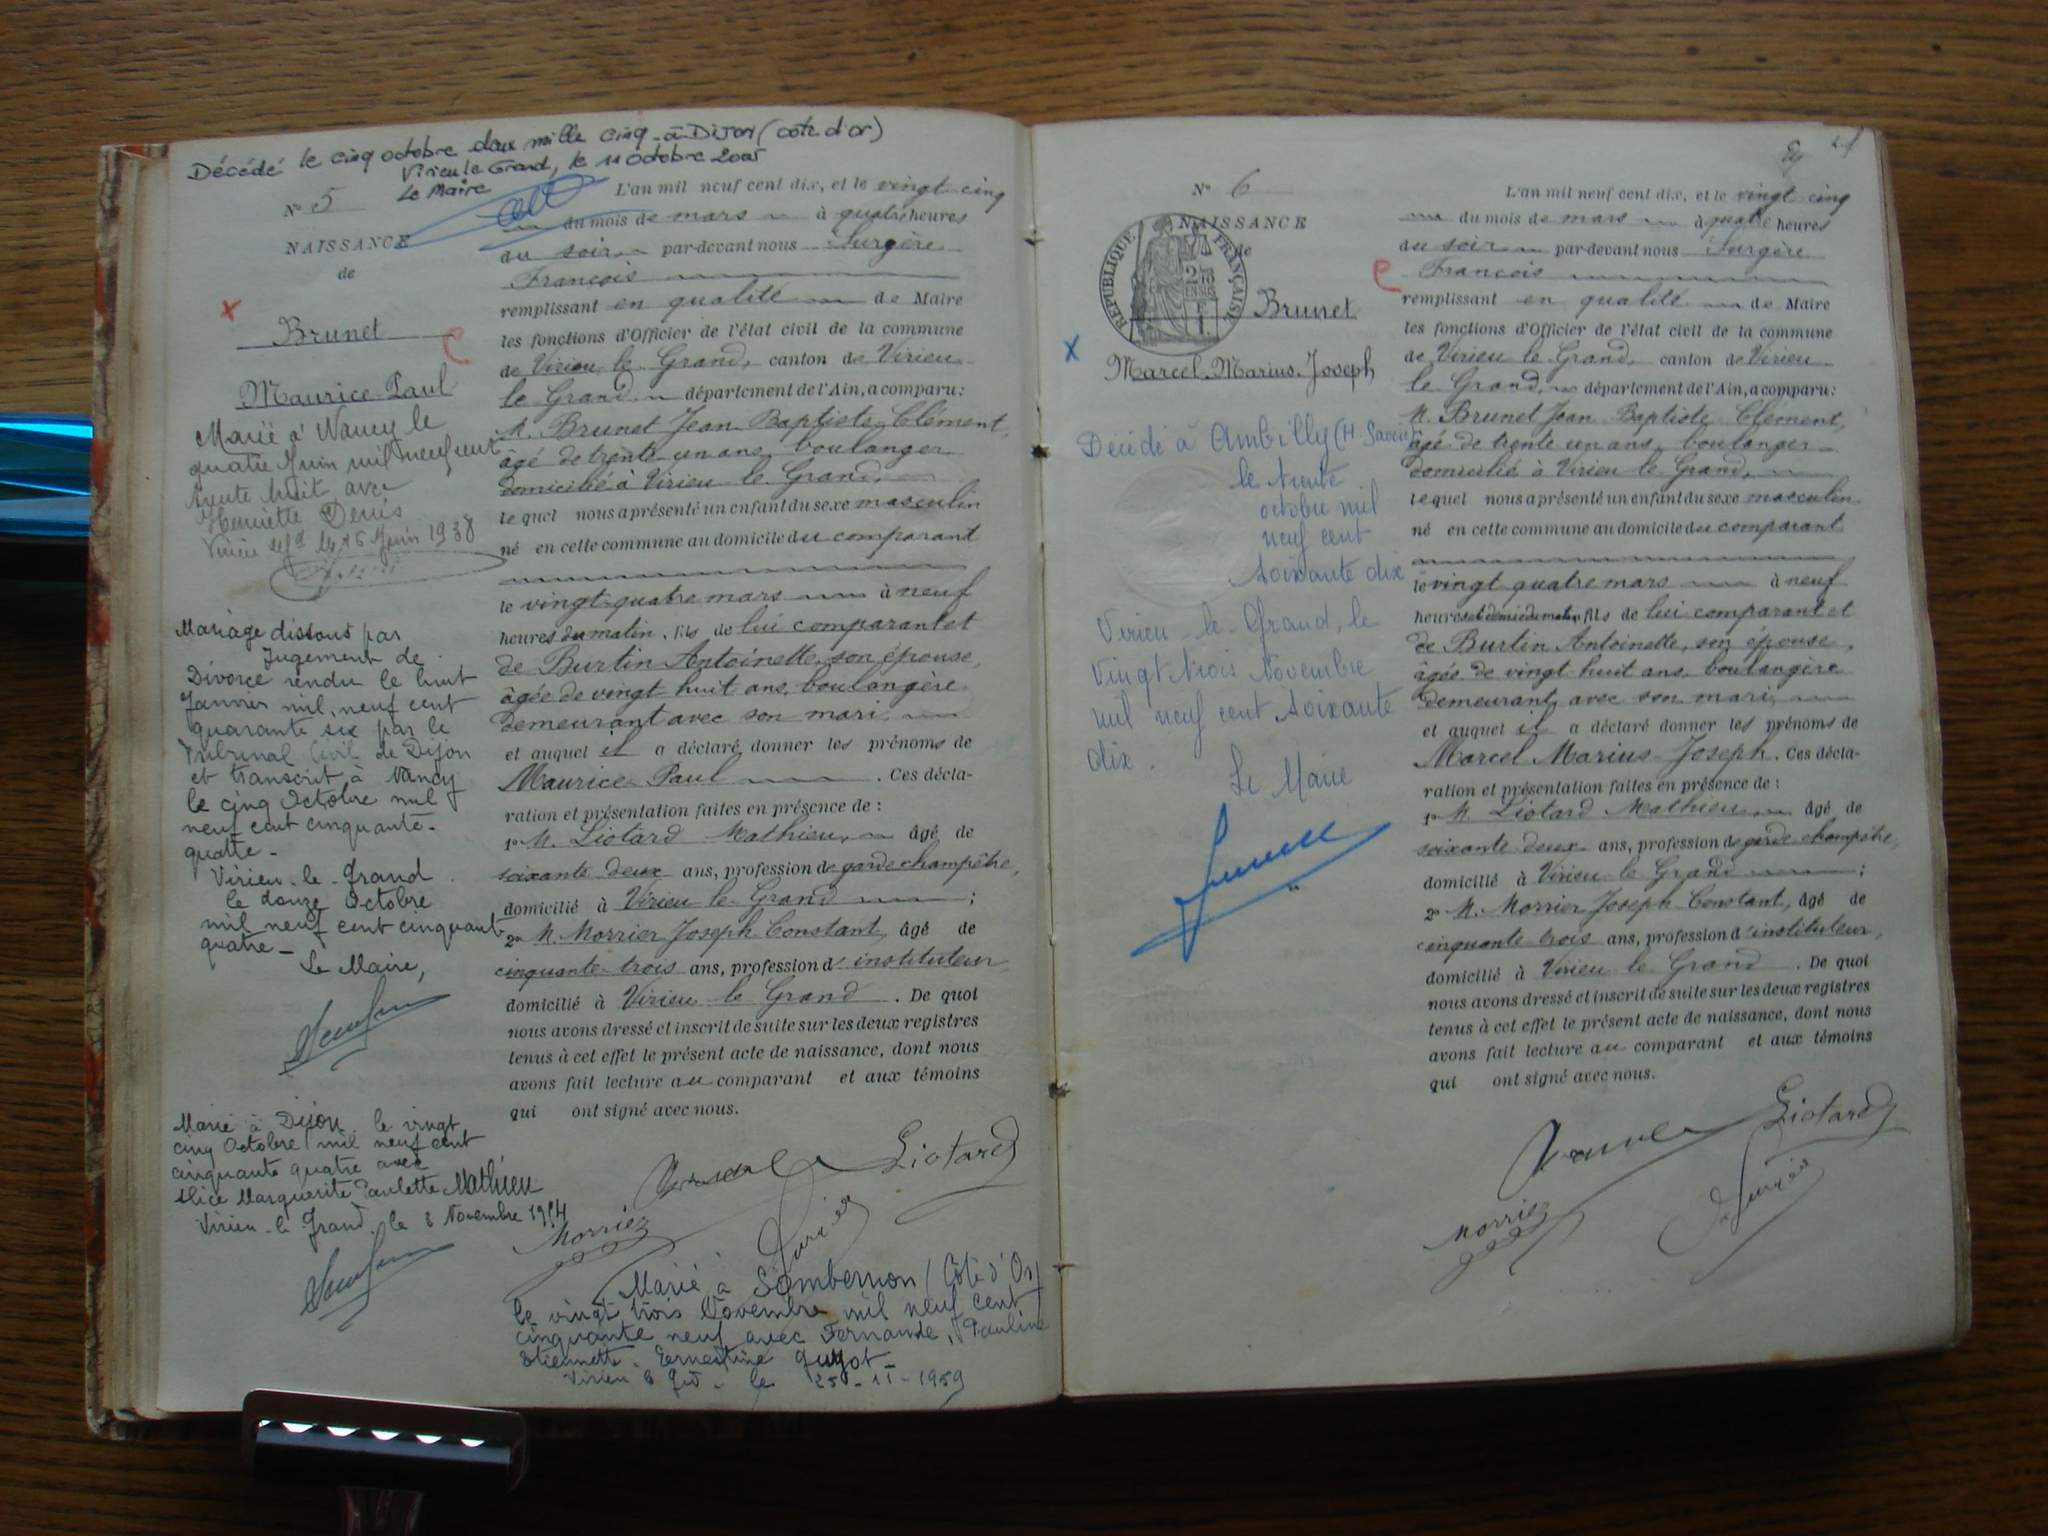 Décédé le cinq octobre deux mille cinq à Dijon (côte d'or)
Virieu le Grand, le 11 octobre 2005
Le Maire
N° 5
NAISSANCE
de
Brunet
Maurice Paul
Marié à Nancy le
quatre Juin mil neuf cent
trente huit avec
Henriette Denis
Virieu le Gd le 16 Juin 1938
Mariage dissous par
Jugement de
Divorce rendu le huit
Janvier mil neuf cent
quarante six par le
Tribunal Civil de Dijon
et transcrit à Nancy
le cinq Octobre mil
neuf cent cinquante-
quatre -
Virieu-le-Grand
le douze Octobre
mil neuf cent cinquante
quatre -
Le Maire,
Marié à Dijon le vingt
cinq Octobre mil neuf cent
cinquante quatre avec
Alice Marguerite Paulette Mathieu
Virieu-le Grand, le 8 Novembre 1954
L'an mil neuf cent dix, et le vingt cinq
du mois de mars à quatre heures
du soir par-devant nous Surgère
François
remplissant en qualité de Maire
les fonctions d'Officier de l'état civil de la commune
de Virieu le Grand, canton de Virieu
le Grand département de l'Ain, a comparu :
M. Brunet Jean Baptiste Clément,
âgé de trente un ans, boulanger
domicilié à Virieu le Grand,
lequel nous a présenté un enfant du sexe masculin
né en cette commune au domicile du comparant
le vingt quatre mars à neuf
heures du matin, fils de lui comparant et
de Burtin Antoinette, son épouse,
âgée de vingt huit ans, boulangère
demeurant avec son mari,
et auquel il a déclaré donner les prénoms de
Maurice Paul . Ces décla-
ration et présentation faites en présence de :
1° M. Liotard Mathieu, âgé de
soixante deux ans, profession de garde champêtre,
domicilié à Virieu le Grand ;
2° M. Morrier Joseph Constant, âgé de
cinquante trois ans, profession d'instituteur,
domicilié à Virieu le Grand . De quoi
nous avons dressé et inscrit de suite sur les deux registres
tenus à cet effet le présent acte de naissance, dont nous
avons fait lecture au comparant et aux témoins
qui ont signé avec nous.
Brunet Liotard
Morrier
Marié à Sombernon (Côte d'Or)
le vingt trois Novembre mil neuf cent
cinquante neuf avec Fernande, Pauline
Etiennette Ernestine Guyot -
Virieu le Gd - le 25-11-1959
N° 6
NAISSANCE
de
RÉPUBLIQUE FRANÇAISE
Brunet
Marcel Marius Joseph
Décédé à Ambilly (H. Savoie)
le trente
octobre mil
neuf cent
soixante dix
Virieu-le-Grand, le
Vingt trois Novembre
mil neuf cent soixante
dix.
Le Maire
L'an mil neuf cent dix, et le vingt cinq
du mois de mars à quatre heures
du soir par-devant nous Surgère
François
remplissant en qualité de Maire
les fonctions d'Officier de l'état civil de la commune
de Virieu le Grand, canton de Virieu
le Grand, département de l'Ain, a comparu :
M. Brunet Jean Baptiste Clément,
âgé de trente un ans, boulanger
domicilié à Virieu le Grand,
lequel nous a présenté un enfant du sexe masculin
né en cette commune au domicile du comparant
le vingt quatre mars à neuf
heures et demie du matin fils de lui comparant et
de Burtin Antoinette, son épouse,
âgée de vingt huit ans, boulangère
demeurant avec son mari,
et auquel il a déclaré donner les prénoms de
Marcel Marius Joseph. Ces décla-
ration et présentation faites en présence de :
1° M. Liotard Mathieu, âgé de
soixante deux ans, profession de garde champêtre,
domicilié à Virieu le Grand ;
2° M. Morrier Joseph Constant, âgé de
cinquante trois ans, profession d'instituteur,
domicilié à Virieu le Grand . De quoi
nous avons dressé et inscrit de suite sur les deux registres
tenus à cet effet le présent acte de naissance, dont nous
avons fait lecture au comparant et aux témoins
qui ont signé avec nous.
Brunet Liotard
Morrier Surgère